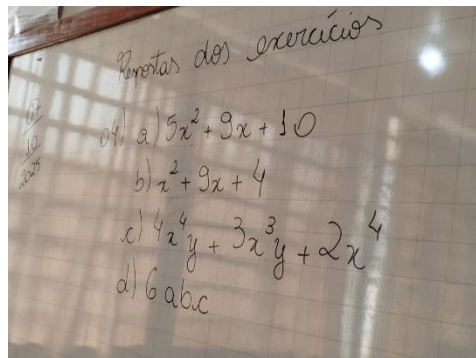 Repostas dos exercícios
07
10
2025
04) a) 5x² + 9x + 10
b) x² + 9x + 4
c) 4x⁴y + 3x³y + 2x⁴
d) 6abc